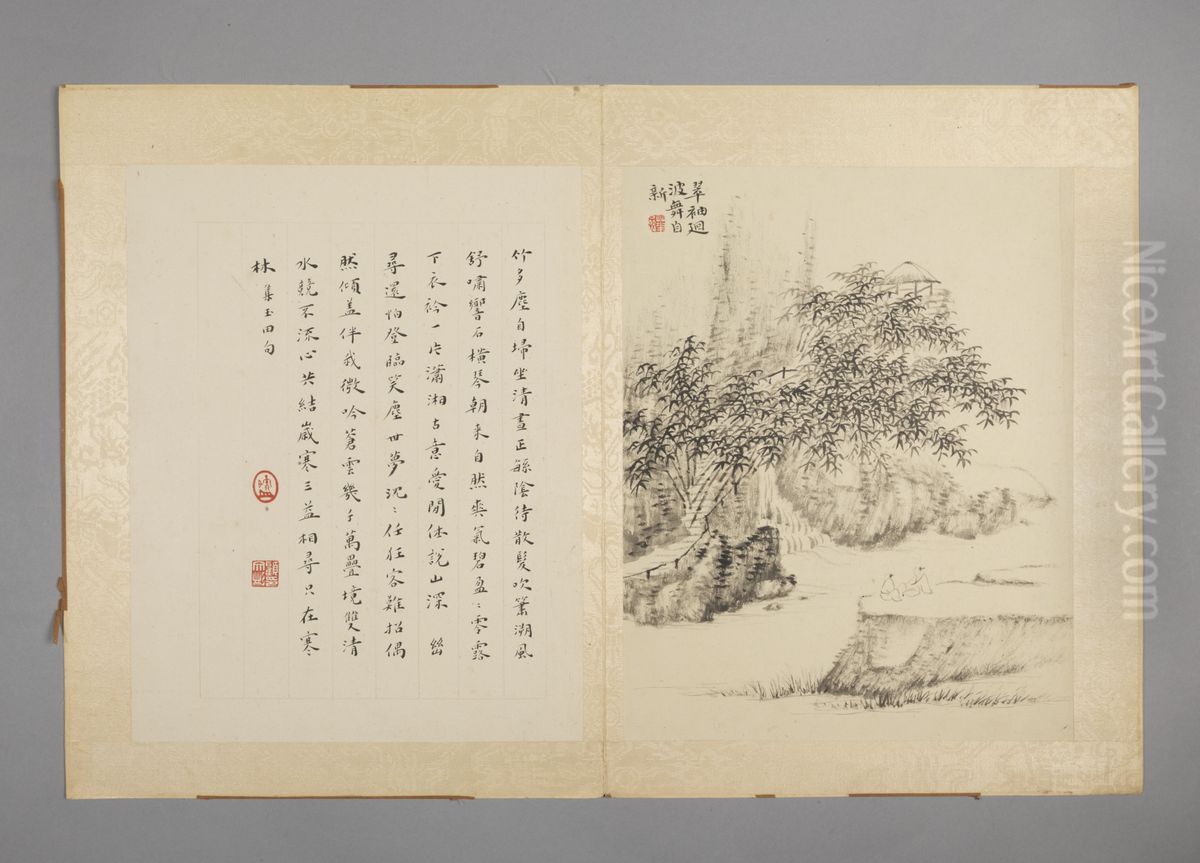 翠袖迴
波舞自
新
竹多塵自埽坐清晝正緜陰待散髮吹簫溯風
舒嘯響石橫琴朝來自然爽氣碧盈〻零露
下衣衿一片瀟湘古意愛閒休說山深
尋還怕登臨笑塵世夢沈〻任狂客難招偶
然傾蓋伴我微吟蒼雲幾千萬疊境雙清
水競不流心共結歲寒三益相尋只在寒
林 集玉田句
NiceArtGallery.com